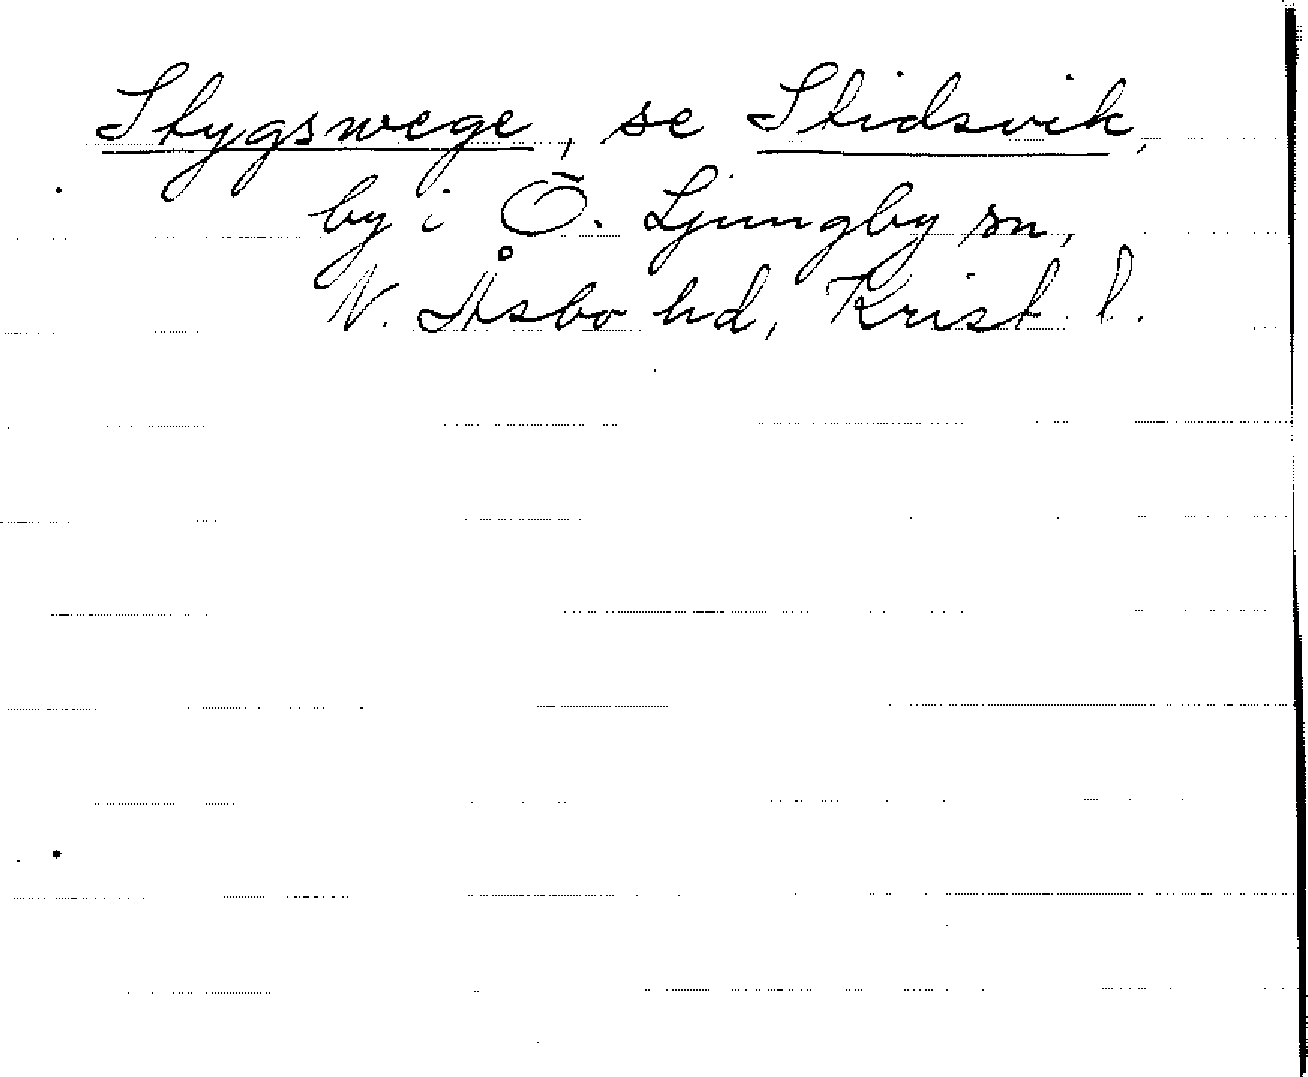 Stygswege, se Stidsvik,
by i Ö. Ljungby sn,
N. Åsbo hd, Krist. l.